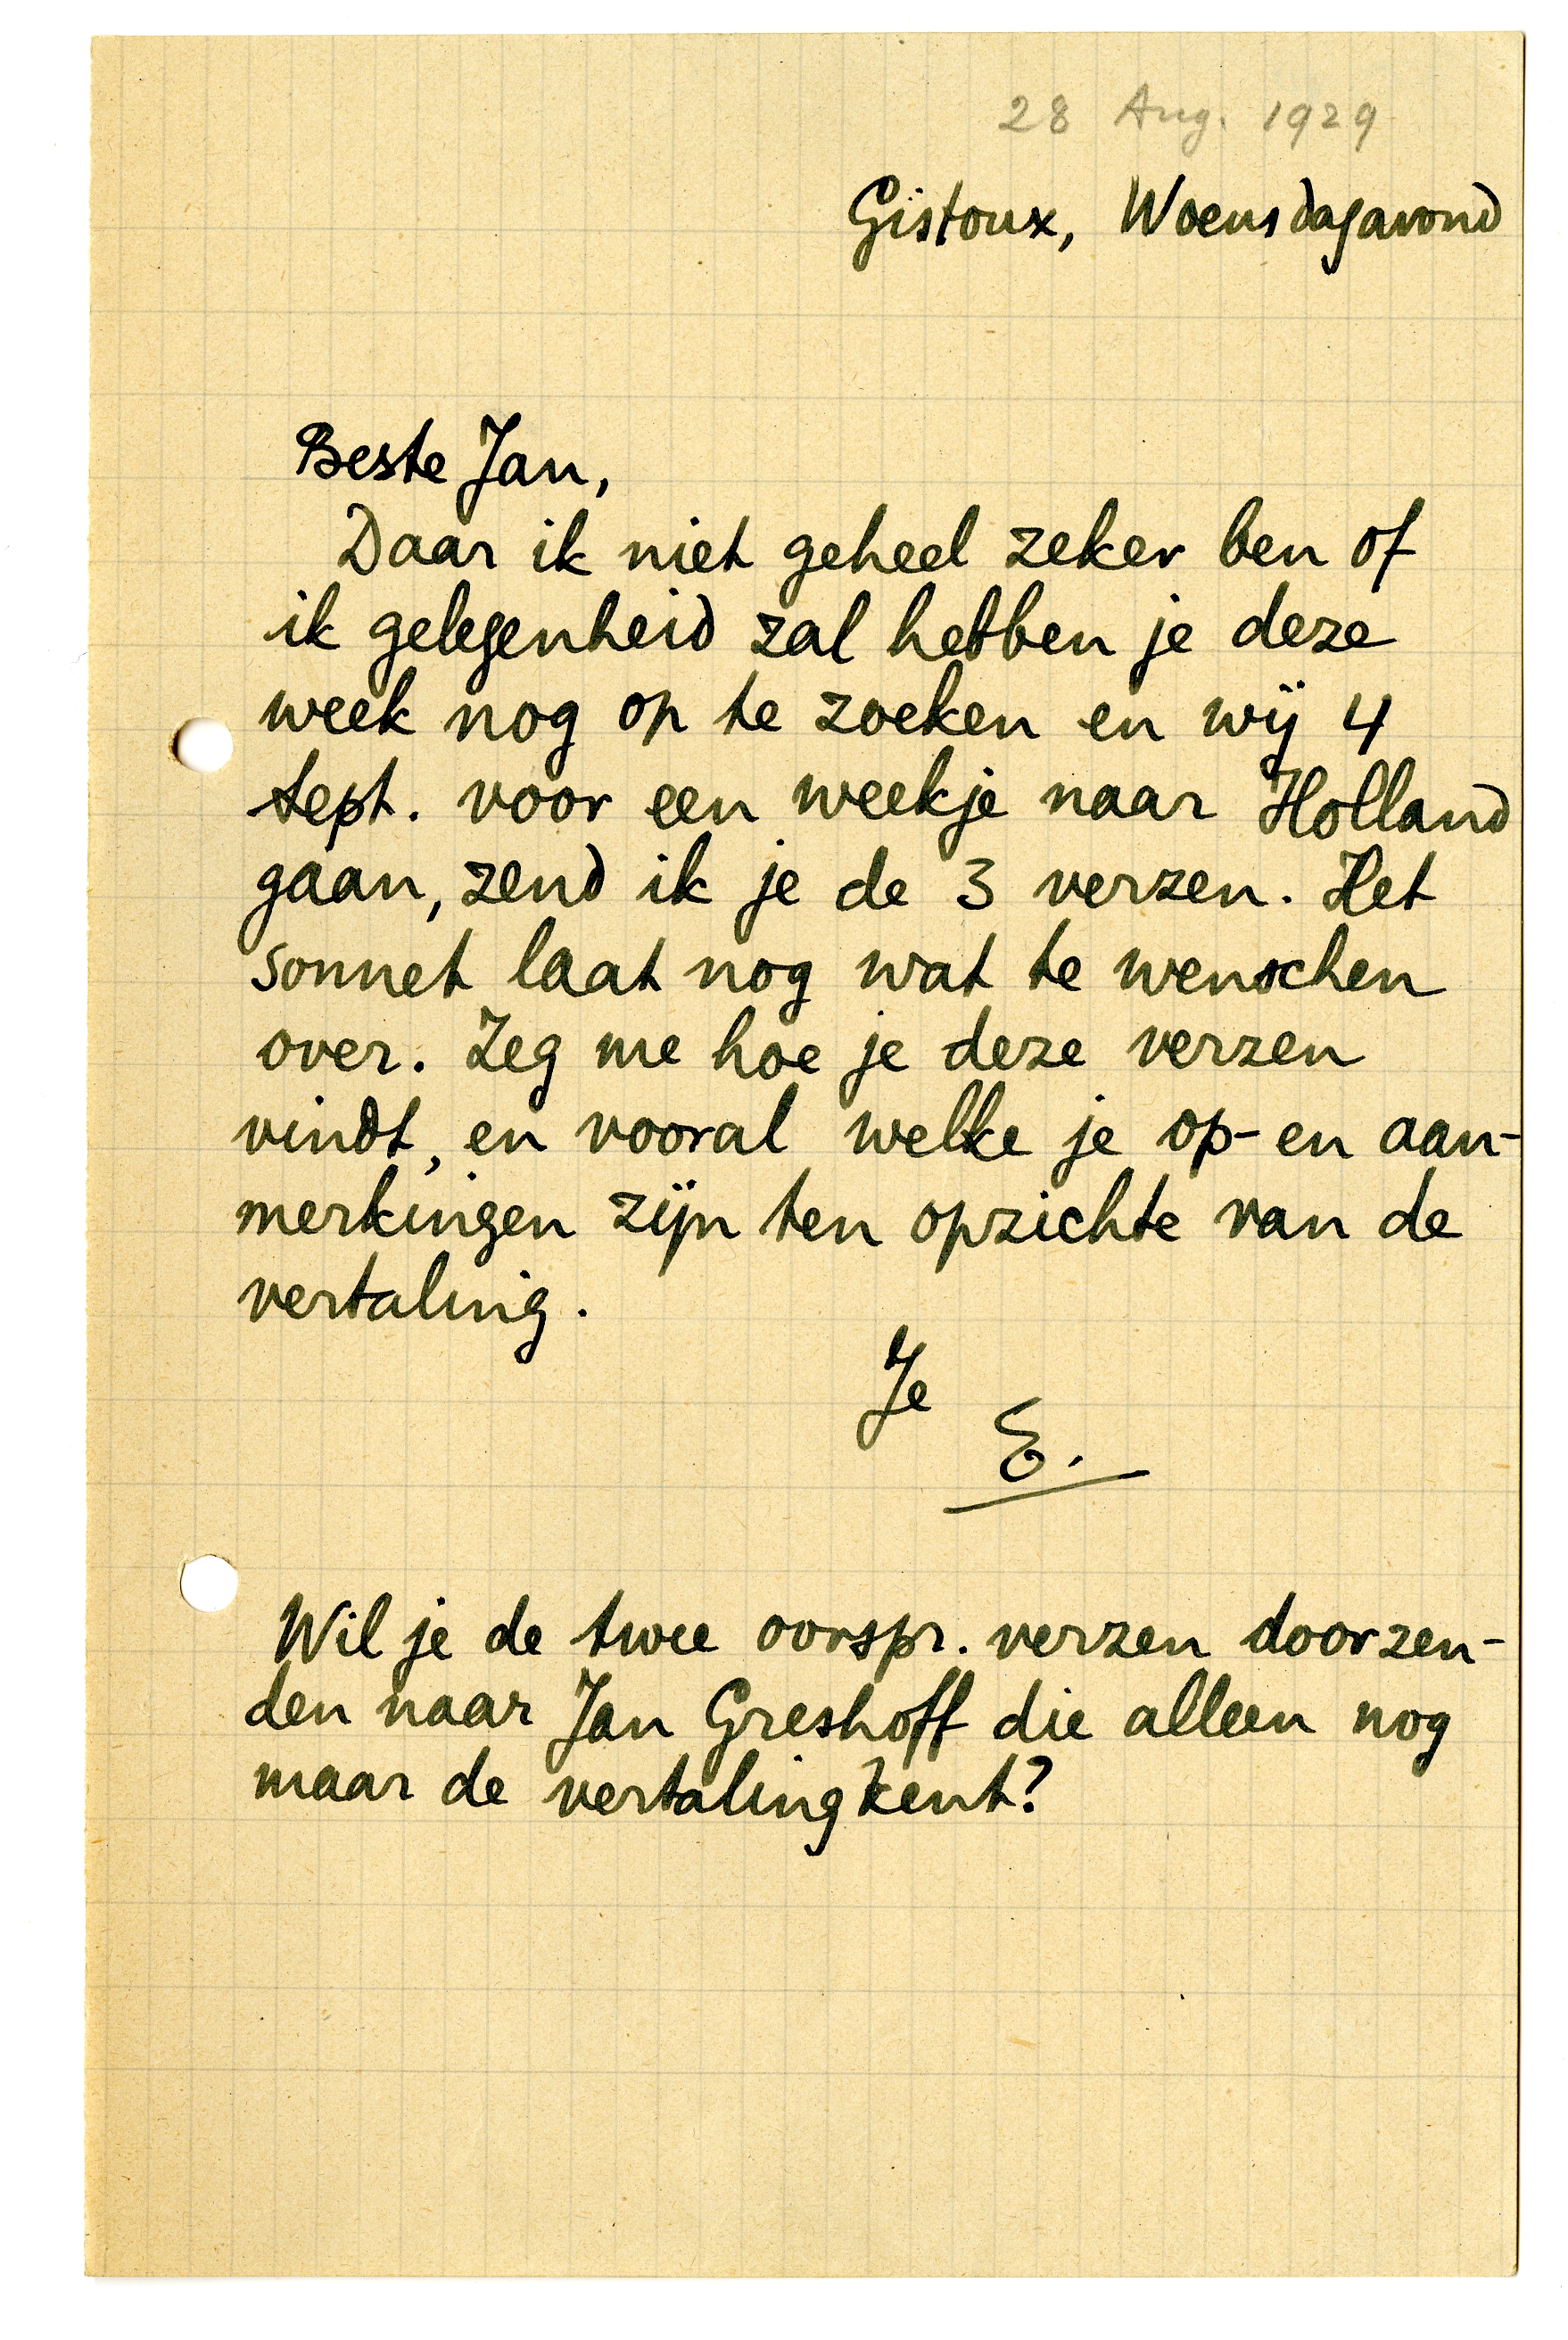 28 Aug. 1929
Gistoux, Woensdagavond
Beste Jan,
Daar ik niet geheel zeker ben of
ik gelegenheid zal hebben je deze
week nog op te zoeken en wij 4
Sept. voor een weekje naar Holland
gaan, zend ik je de 3 verzen. Het
sonnet laat nog wat te wenschen
over. Zeg me hoe je deze verzen
vindt, en vooral welke je op- en aan-
merkingen zijn ten opzichte van de
vertaling.
Je
E.
Wil je de twee oorspr. verzen doorzen-
den naar Jan Greshoff die alleen nog
maar de vertaling kent?